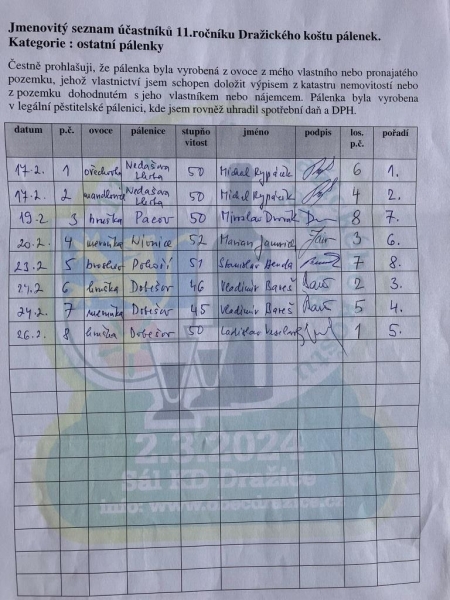 Jmenovitý seznam účastníků 11.ročníku Dražického koštu pálenek.
Kategorie : ostatní pálenky
Čestně prohlašuji, že pálenka byla vyrobená z ovoce z mého vlastního nebo pronajatého
pozemku, jehož vlastnictví jsem schopen doložit výpisem z katastru nemovitostí nebo
z pozemku dohodnutém s jeho vlastníkem nebo nájemcem. Pálenka byla vyrobena
v legální pěstitelské pálenici, kde jsem rovněž uhradil spotřební daň a DPH.
datum p.č. ovoce pálenice stupňovitost jméno podpis los. p.č. pořadí
17.2. 1 Nedašova Lhota 50 Michal 6 1.
17.2. 2 mandlovice Nedašova Lhota 50 Michal 4 2.
19.2. 3 hruška Pacov 50 Miroslav Dvořák 8 7.
20.2. 4 meruňka 52 Marian 3 6.
23.2 5 Pohoří 51 Stanislav Benda 7 8.
24.2 6 hruška Dobešov 46 Vladimír Bareš 2 3.
24.2. 7 meruňka Dobešov 45 Vladimír Bareš 5 4.
26.2. 8 hruška Dobešov 50 Ladislav 1 5.
2.3.2024
Sál KD Dražice
info: www.obecdrazice.cz